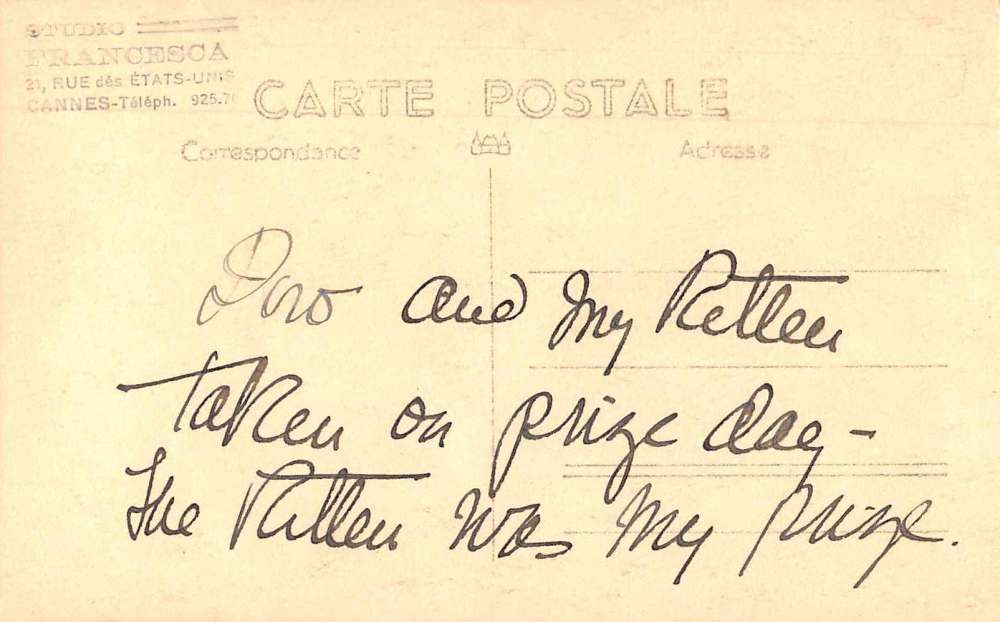 STUDIO
FRANCESCA
21, RUE dés ÉTATS-UNIS
CANNES-Téléph. 925.7
CARTE POSTALE
Correspondance
Adresse
and my Kitten
taken on prize day -
The Kitten was my prize.